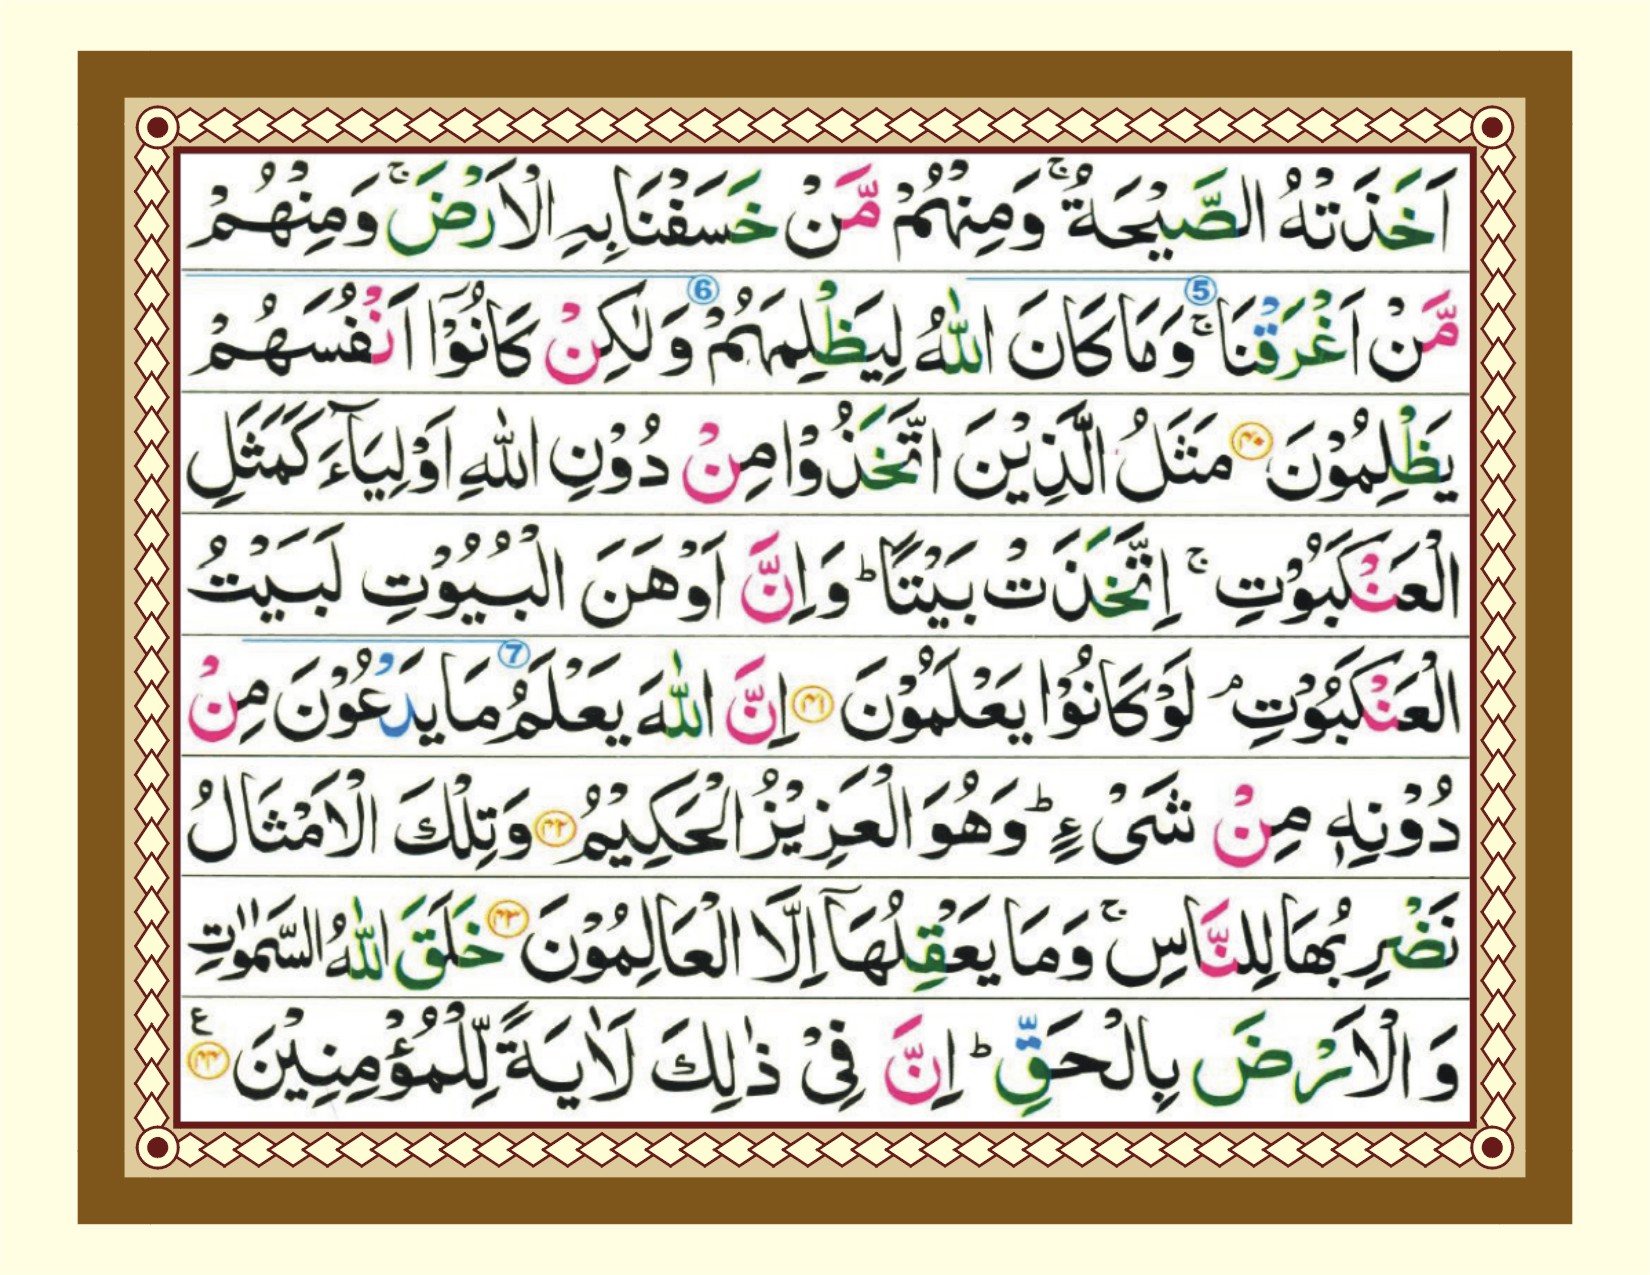 اَخَذَتْهُ الصَّيْحَةُ ۚ وَمِنْهُمْ مَّنْ خَسَفْنَا بِهِ الْاَرْضَ ۚ وَمِنْهُمْ
مَّنْ اَغْرَقْنَا ۚ وَمَا كَانَ اللّٰهُ لِيَظْلِمَهُمْ وَلٰكِنْ كَانُوْۤا اَنْفُسَهُمْ
5 6
يَظْلِمُوْنَ ۴۰ مَثَلُ الَّذِيْنَ اتَّخَذُوْا مِنْ دُوْنِ اللّٰهِ اَوْلِيَآءَ كَمَثَلِ
الْعَنْكَبُوْتِ ۚ اِتَّخَذَتْ بَيْتًا ؕ وَاِنَّ اَوْهَنَ الْبُيُوْتِ لَبَيْتُ
الْعَنْكَبُوْتِ ۘ لَوْ كَانُوْا يَعْلَمُوْنَ ۴۱ اِنَّ اللّٰهَ يَعْلَمُ مَا يَدْعُوْنَ مِنْ
7
دُوْنِهٖ مِنْ شَیْءٍ ؕ وَهُوَ الْعَزِيْزُ الْحَكِيْمُ ۴۲ وَتِلْكَ الْاَمْثَالُ
نَضْرِبُهَا لِلنَّاسِ ۚ وَمَا يَعْقِلُهَاۤ اِلَّا الْعَالِمُوْنَ ۴۳ خَلَقَ اللّٰهُ السَّمٰوٰتِ
وَالْاَرْضَ بِالْحَقِّ ؕ اِنَّ فِیْ ذٰلِكَ لَاٰيَةً لِّلْمُؤْمِنِيْنَ ۴۴ ع